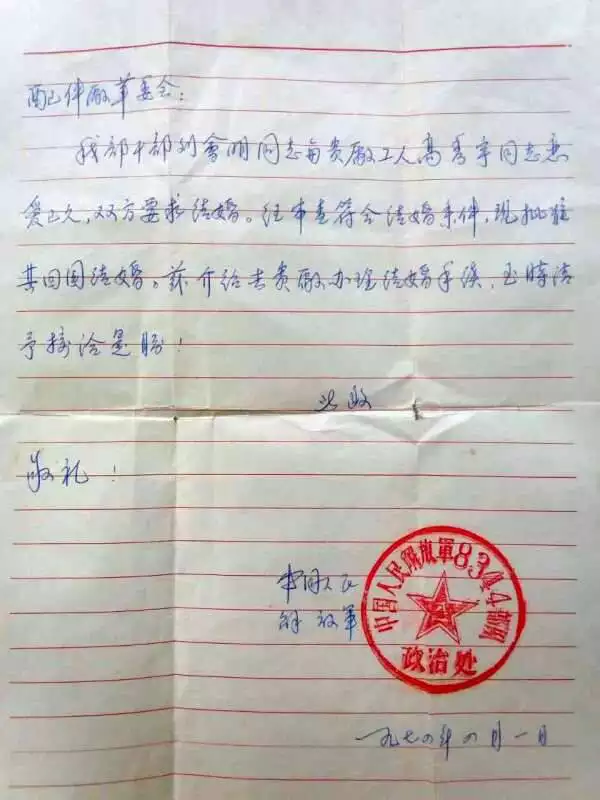 配件厰革委会：
我部干部刘會明同志与贵厰工人高秀宇同志恋
爱已久，双方要求结婚。经审查符合结婚条件，现批准
其回国结婚。兹介绍去贵厰办理结婚手续，至时请
予接洽是盼！
此致
敬礼！
中国人民
解放军
中国人民解放軍8344部队
政治处
一九七四年四月一日